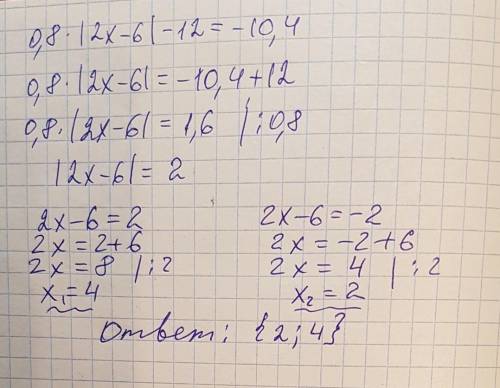 0,8·|2x-6|-12=-10,4
0,8·|2x-6|=-10,4+12
0,8·|2x-6|=1,6 |:0,8
|2x-6|=2
2x-6=2
2x=2+6
2x=8 |:2
x₁=4
2x-6=-2
2x=-2+6
2x=4 |:2
x₂=2
Ответ: {2;4}